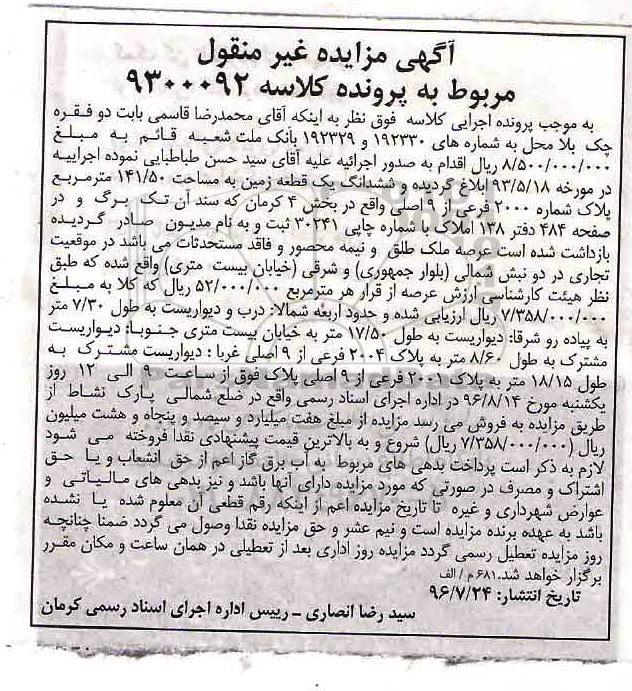 آگهی مزایده غیر منقول
مربوط به پرونده کلاسه ۹۳۰۰۰۹۲
به موجب پرونده اجرایی کلاسه فوق نظر به اینکه آقای محمدرضا قاسمی بابت دو فقره
چک بلا محل به شماره های ۱۹۲۳۳۰ و ۱۹۲۳۲۹ بانک ملت شعبه قائم به مبلغ
۸/۵۰۰/۰۰۰/۰۰۰ ریال اقدام به صدور اجرائیه علیه آقای سید حسن طباطبایی نموده اجراییه
در مورخه ۹۳/۵/۱۸ ابلاغ گردیده و ششدانگ یک قطعه زمین به مساحت ۱۴۱/۵۰ مترمربع
پلاک شماره ۲۰۰۰ فرعی از ۹ اصلی واقع در بخش ۴ کرمان که سند آن تک برگ و در
صفحه ۴۸۴ دفتر ۱۳۸ املاک با شماره چاپی ۳۰۲۴۱ ثبت و به نام مدیون صادر گردیده
بازداشت شده است عرصه ملک طلق و نیمه محصور و فاقد مستحدثات می باشد در موقعیت
تجاری در دو نبش شمالی (بلوار جمهوری) و شرقی (خیابان بیست متری) واقع شده که طبق
نظر هیئت کارشناسی ارزش عرصه از قرار هر مترمربع ۵۲/۰۰۰/۰۰۰ ریال که کلا به مبلغ
۷/۳۵۸/۰۰۰/۰۰۰ ریال ارزیابی شده و حدود اربعه شمالا: درب و دیواریست به طول ۷/۳۰ متر
به پیاده رو شرقا: دیواریست به طول ۱۷/۵۰ متر به خیابان بیست متری جنوبا: دیواریست
مشترک به طول ۸/۶۰ متر به پلاک ۲۰۰۴ فرعی از ۹ اصلی غربا : دیواریست مشترک به
طول ۱۸/۱۵ متر به پلاک ۲۰۰۱ فرعی از ۹ اصلی پلاک فوق از ساعت ۹ الی ۱۲ روز
یکشنبه مورخ ۹۶/۸/۱۴ در اداره اجرای اسناد رسمی واقع در ضلع شمالی پارک نشاط از
طریق مزایده به فروش می رسد مزایده از مبلغ هفت میلیارد و سیصد و پنجاه و هشت میلیون
ریال (۷/۳۵۸/۰۰۰/۰۰۰ ریال) شروع و به بالاترین قیمت پیشنهادی نقدا فروخته می شود
لازم به ذکر است پرداخت بدهی های مربوط به آب برق گاز اعم از حق انشعاب و یا حق
اشتراک و مصرف در صورتی که مورد مزایده دارای آنها باشد و نیز بدهی های مالیاتی و
عوارض شهرداری و غیره تا تاریخ مزایده اعم از اینکه رقم قطعی آن معلوم شده یا نشده
باشد به عهده برنده مزایده است و نیم عشر و حق مزایده نقدا وصول می گردد ضمنا چنانچه
روز مزایده تعطیل رسمی گردد مزایده روز اداری بعد از تعطیلی در همان ساعت و مکان مقرر
برگزار خواهد شد.۶۸۱ م / الف
تاریخ انتشار: ۹۶/۷/۲۴
سید رضا انصاری ـ رییس اداره اجرای اسناد رسمی کرمان